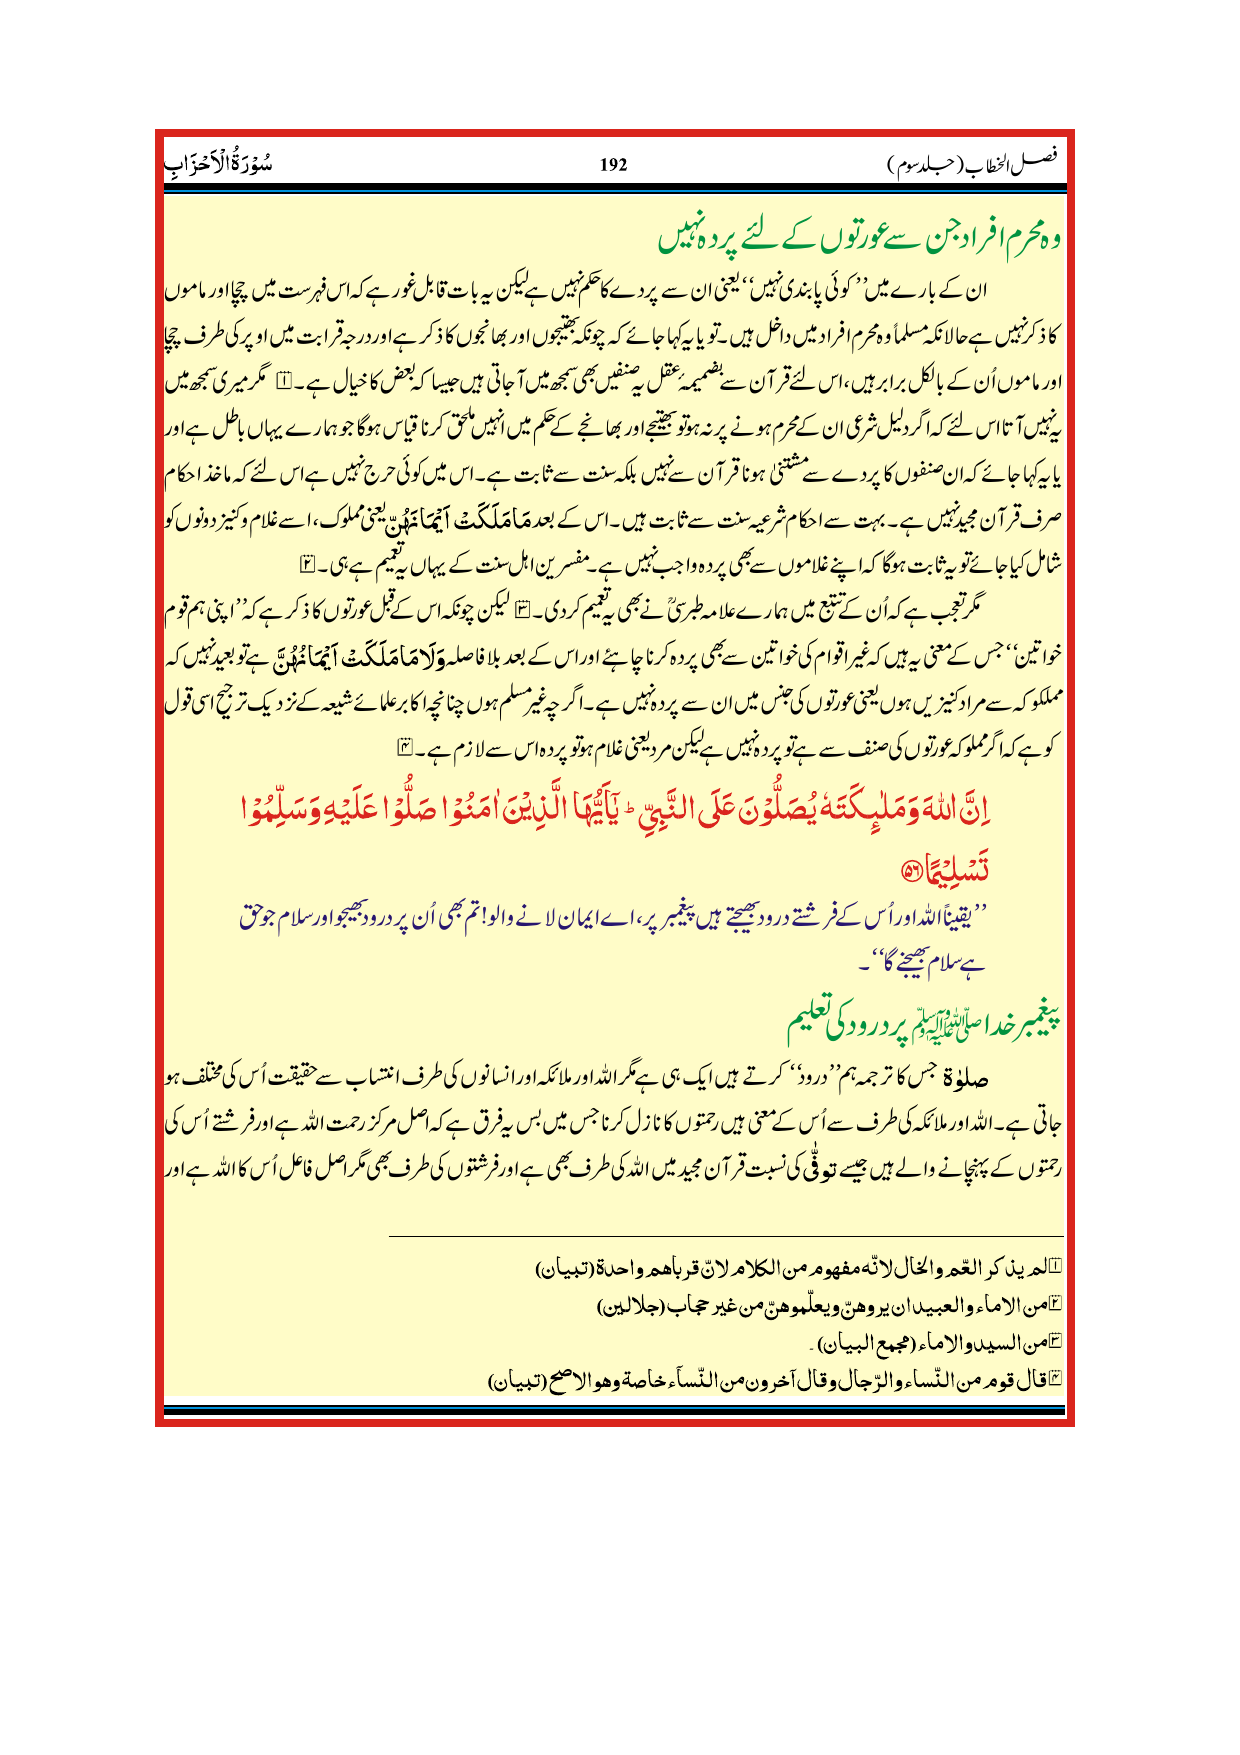 فصل الخطاب (جلد سوم) 192 سُوْرَۃُ الْاَحْزَابِ
وہ محرم افراد جن سے عورتوں کے لئے پردہ نہیں
ان کے بارے میں ’’کوئی پابندی نہیں‘‘ یعنی ان سے پردے کا حکم نہیں ہے لیکن یہ بات قابل غور ہے کہ اس فہرست میں چچا اور ماموں
کا ذکر نہیں ہے حالانکہ مسلماً وہ محرم افراد میں داخل ہیں۔ تو یا یہ کہا جائے کہ چونکہ بھتیجوں اور بھانجوں کا ذکر ہے اور درجہ قرابت میں اوپر کی طرف چچا
اور ماموں اُن کے بالکل برابر ہیں، اس لئے قرآن سے بضمیمۂ عقل یہ صنفیں بھی سمجھ میں آ جاتی ہیں جیسا کہ بعض کا خیال ہے۔ ۱ مگر میری سمجھ میں
یہ نہیں آتا اس لئے کہ اگر دلیل شرعی ان کے محرم ہونے پر نہ ہو تو بھتیجے اور بھانجے کے حکم میں انہیں ملحق کرنا قیاس ہوگا جو ہمارے یہاں باطل ہے اور
یا یہ کہا جائے کہ ان صنفوں کا پردے سے مشتنیٰ ہونا قرآن سے نہیں بلکہ سنت سے ثابت ہے۔ اس میں کوئی حرج نہیں ہے اس لئے کہ ماخذ احکام
صرف قرآن مجید نہیں ہے۔ بہت سے احکام شرعیہ سنت سے ثابت ہیں۔ اس کے بعد مَا مَلَكَتْ اَيْمَانَهُنّ یعنی مملوک، اسے غلام و کنیز دونوں کو
شامل کیا جائے تو یہ ثابت ہوگا کہ اپنے غلاموں سے بھی پردہ واجب نہیں ہے۔ مفسرین اہل سنت کے یہاں یہ تعمیم ہے ہی۔ ۲
مگر تعجب ہے کہ اُن کے تتبع میں ہمارے علامہ طبرسیؒ نے بھی یہ تعمیم کر دی۔ ۳ لیکن چونکہ اس کے قبل عورتوں کا ذکر ہے کہ ’’اپنی ہم قوم
خواتین‘‘ جس کے معنی یہ ہیں کہ غیر اقوام کی خواتین سے بھی پردہ کرنا چاہئے اور اس کے بعد بلا فاصلہ وَلَا مَا مَلَكَتْ اَيْمَانُهُنَّ ہے تو بعید نہیں کہ
مملکوکہ سے مراد کنیزیں ہوں یعنی عورتوں کی جنس میں ان سے پردہ نہیں ہے۔ اگر چہ غیر مسلم ہوں چنانچہ اکابر علمائے شیعہ کے نزدیک ترجیح اسی قول
کو ہے کہ اگر مملوکہ عورتوں کی صنف سے ہے تو پردہ نہیں ہے لیکن مرد یعنی غلام ہو تو پردہ اس سے لازم ہے۔ ۴
اِنَّ اللّٰهَ وَمَلٰٓىِٕكَتَهٗ يُصَلُّوْنَ عَلَى النَّبِيِّ ؕ يٰٓاَيُّهَا الَّذِيْنَ اٰمَنُوْا صَلُّوْا عَلَيْهِ وَسَلِّمُوْا
تَسْلِيْمًا ۵۶
’’یقیناً اللہ اور اُس کے فرشتے درود بھیجتے ہیں پیغمبر پر، اے ایمان لانے والو! تم بھی اُن پر درود بھیجو اور سلام جو حق
ہے سلام بھیجنے گا‘‘۔
پیغمبر خدا ﷺ پر درود کی تعلیم
صلوٰۃ جس کا ترجمہ ہم ’’درود‘‘ کرتے ہیں ایک ہی ہے مگر اللہ اور ملائکہ اور انسانوں کی طرف انتساب سے حقیقت اُس کی مختلف ہو
جاتی ہے۔ اللہ اور ملائکہ کی طرف سے اُس کے معنی ہیں رحمتوں کا نازل کرنا جس میں بس یہ فرق ہے کہ اصل مرکز رحمت اللہ ہے اور فرشتے اُس کی
رحمتوں کے پہنچانے والے ہیں جیسے توفّٰی کی نسبت قرآن مجید میں اللہ کی طرف بھی ہے اور فرشتوں کی طرف بھی مگر اصل فاعل اُس کا اللہ ہے اور
۱ لم یذکر العّم والخال لانّه مفهوم من الکلام لانّ قرباهم واحدة (تبیان)
۲ من الاماء والعبید ان یروهنّ ویعلّموهنّ من غیر حجاب (جلالین)
۳ من السید والاماء (مجمع البیان)۔
۴ قال قوم من النّساء والرّجال وقال آخرون من النّسآء خاصة وهو الاصح (تبیان)